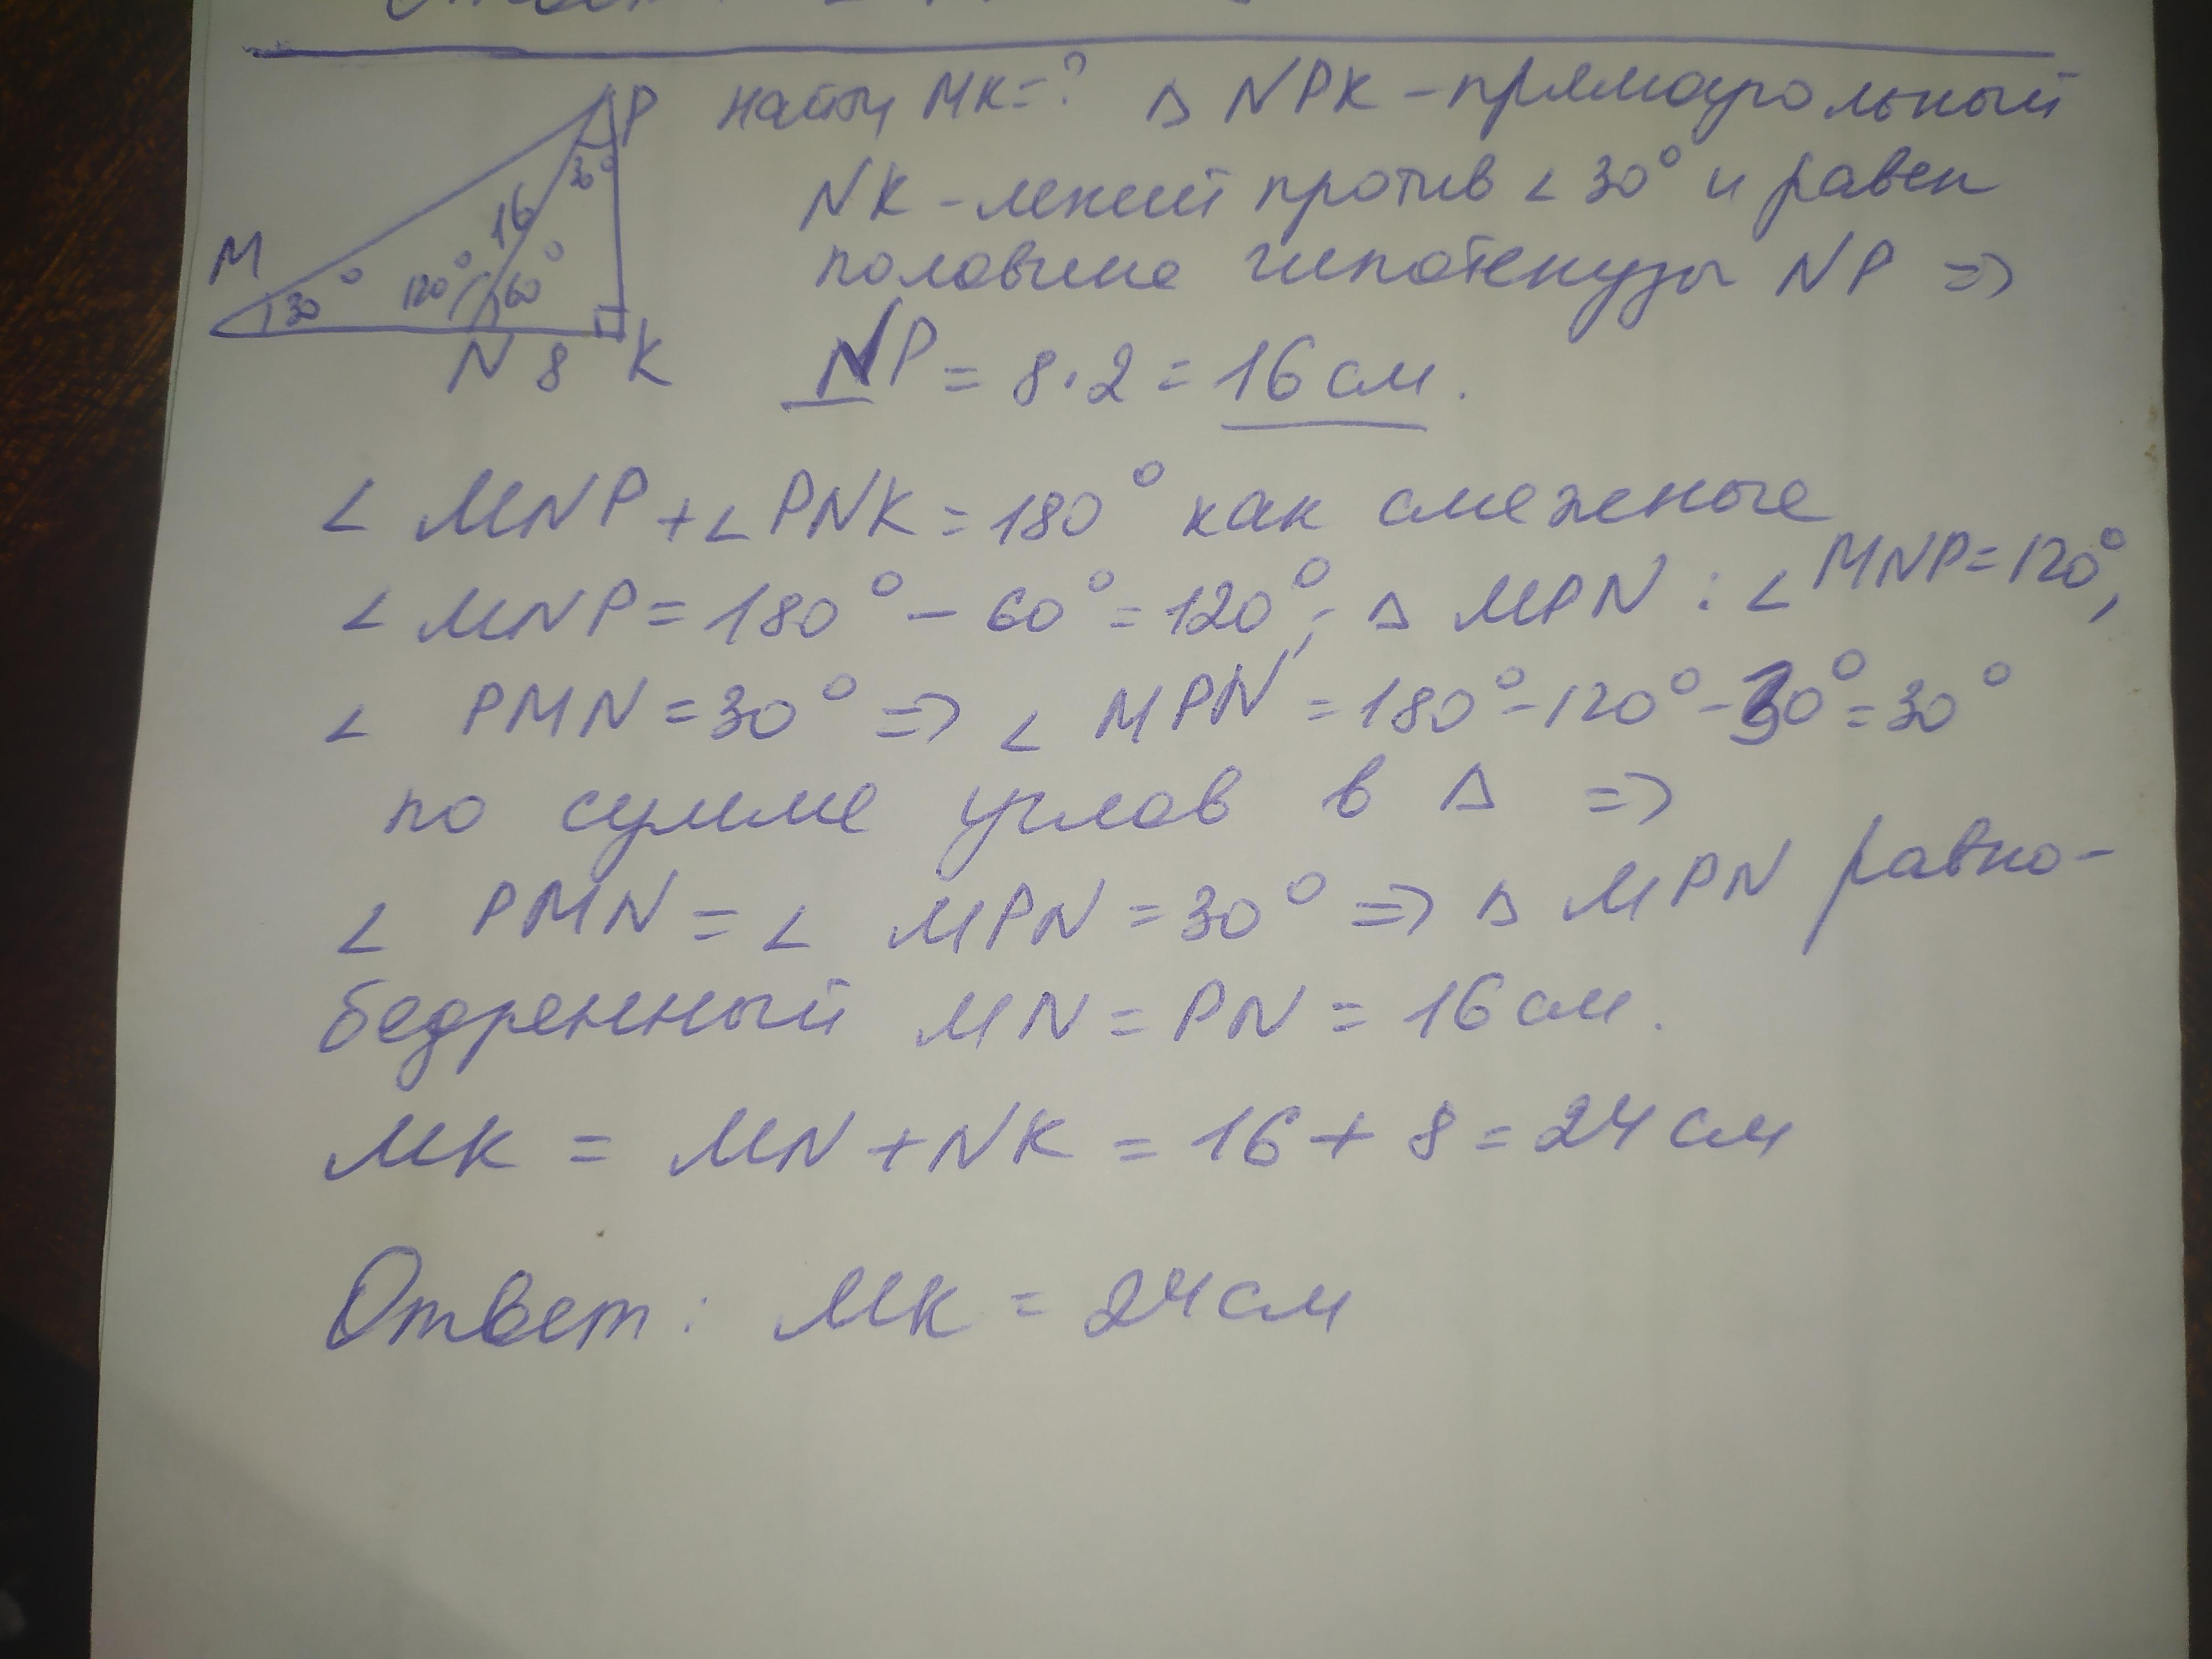 P
30°
16
M
30°
120°
60°
N 8 K
найти MK=? Δ NPK - прямоугольный
NK - лежит против ∠30° и равен
половине гипотенузы NP =>
NP = 8·2 = 16 см.
∠ MNP + ∠PNK = 180° как смежные
∠ MNP = 180° - 60° = 120°; Δ MPN : ∠ MNP = 120°,
∠ PMN = 30° => ∠ MPN = 180° - 120° - 30° = 30°
по сумме углов в Δ =>
∠ PMN = ∠ MPN = 30° => Δ MPN равно-
бедренный MN = PN = 16 см.
MK = MN + NK = 16 + 8 = 24 см
Ответ: MK = 24 см